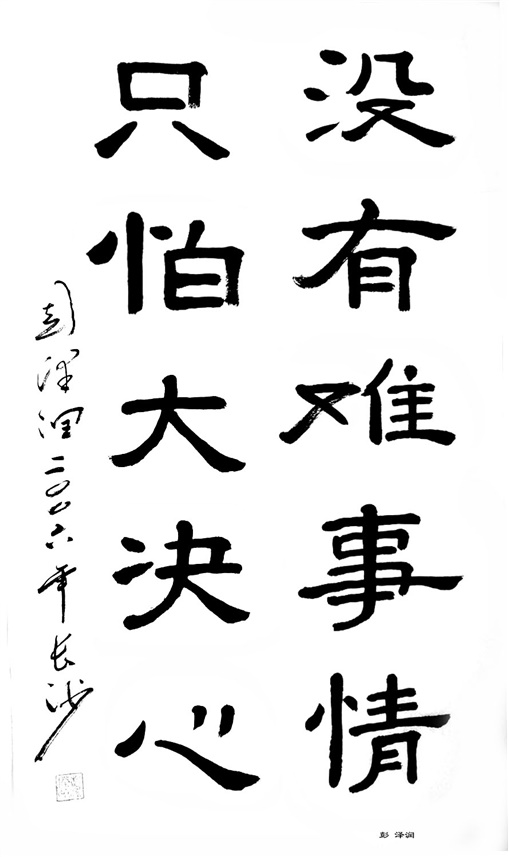 没有难事情
只怕大决心
彭泽润二〇〇六年长沙
彭 泽润